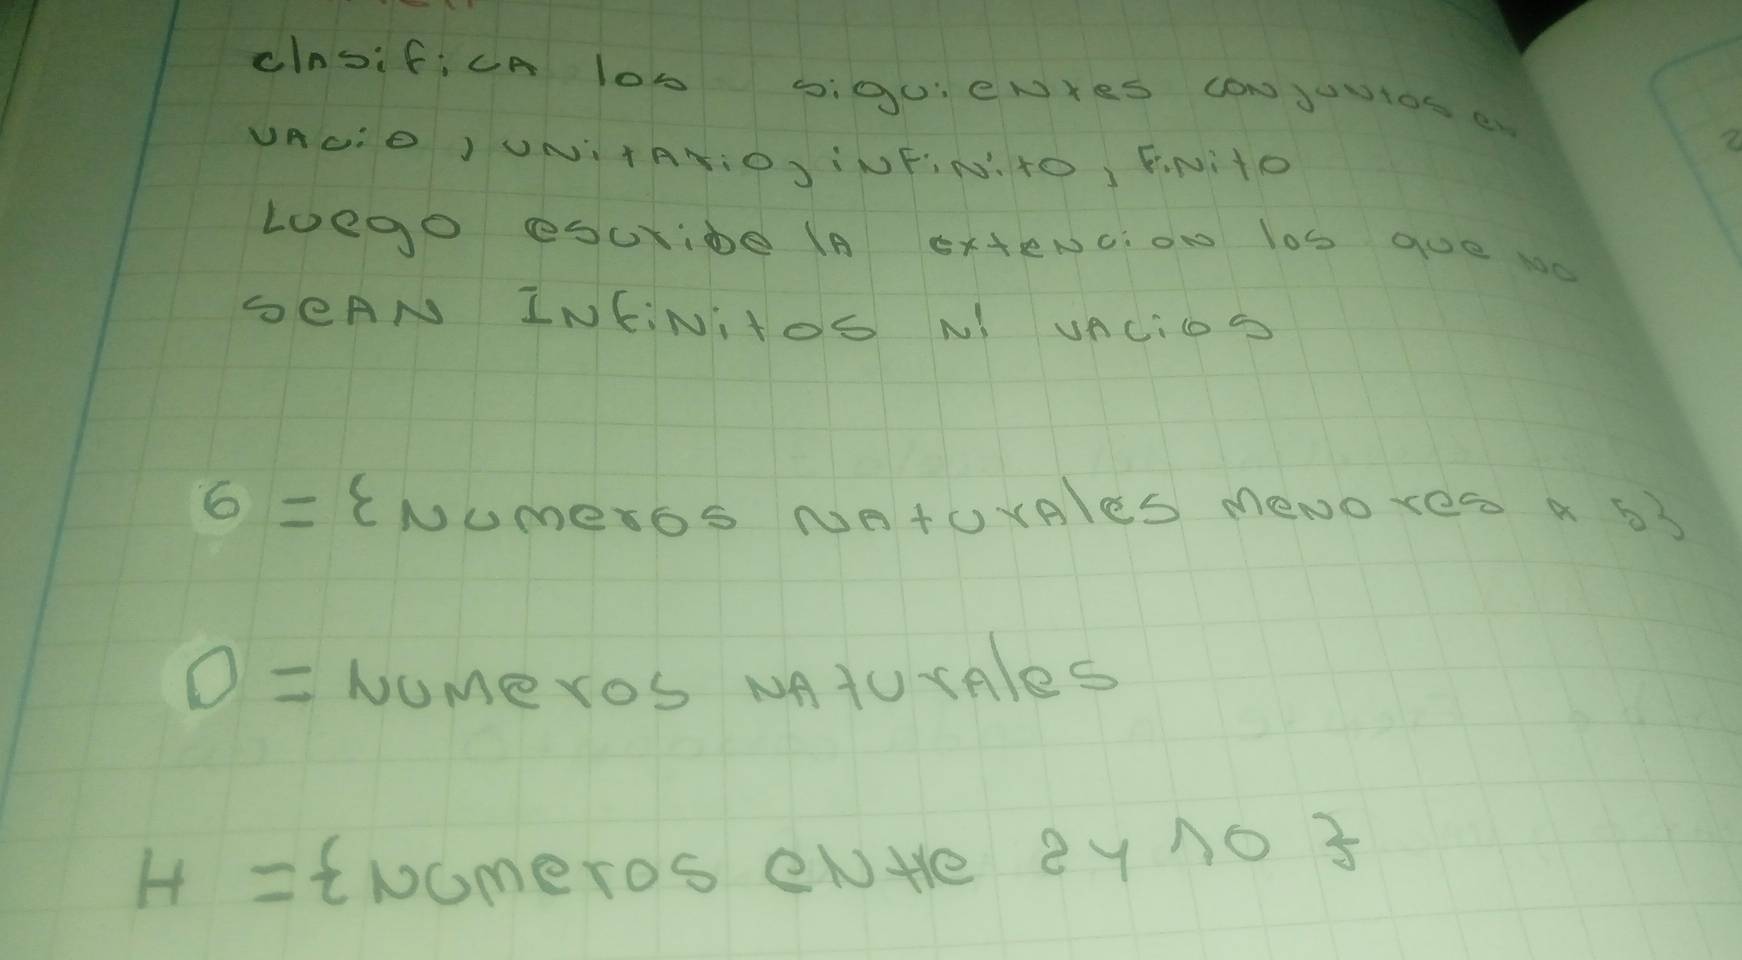 clasifica los siguientes conjuntos en
vacio, unitario, infinito, finito
Luego escribe la extencion los que no
sean Infinitos ni vacios
G = {Numeros naturales menores a 5}
D = Numeros naturales
H = {Numeros entre 2 y 10}